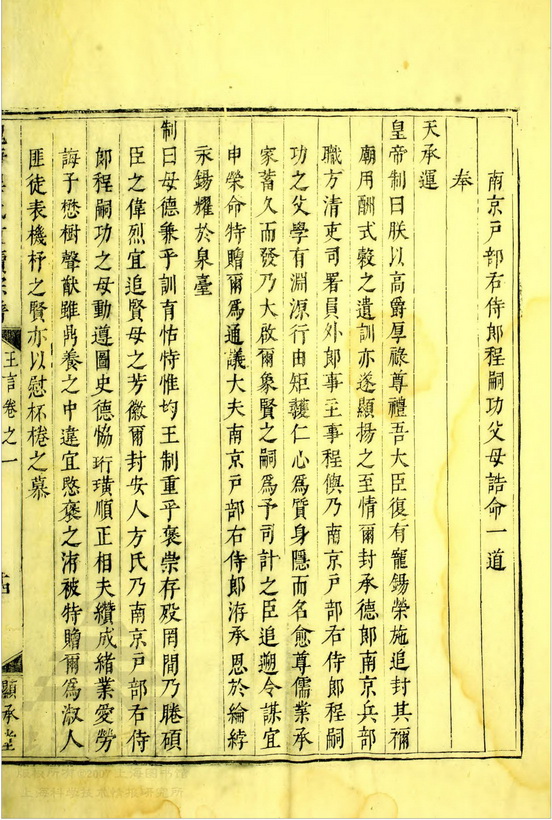 南京戶部右侍郎程嗣功父母誥命一道
奉
天承運
皇帝制曰朕以高爵厚祿尊禮吾大臣復有寵錫榮施追封其禰
廟用酬式穀之遺訓亦遂顯揚之至情爾封承德郎南京兵部
職方清吏司署員外郎事主事程㒜乃南京戶部右侍郎程嗣
功之父學有淵源行由矩矱仁心為質身隱而名愈尊儒業承
家蓄久而發乃大啟爾象賢之嗣為予司計之臣追遡令謀宜
申榮命特贈爾為通議大夫南京戶部右侍郎洊承恩於綸綍
永錫耀於泉臺
制曰母德兼乎訓育怙恃惟均王制重乎褒崇存歿罔間乃睠碩
臣之偉烈宜追賢母之芳徽爾封安人方氏乃南京戶部右侍
郎程嗣功之母動遵圖史德恊珩璜順正相夫纘成緒業愛勞
誨子懋樹聲猷雖鼎養之中違宜愍褒之洊被特贈爾為淑人
匪徒表機杼之賢亦以慰杯棬之慕
王言卷之一
顯承堂